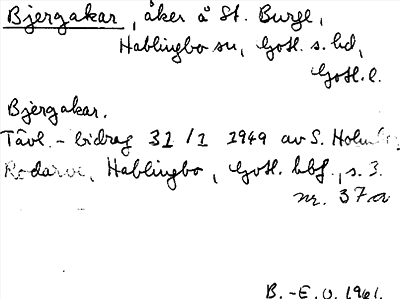 Bjergakar, åker å St. Burge,
Hablingbo sn, Gotl. s. hd,
Gotl. l.
Bjergakar.
Tävl.-bidrag 31/1 1949 av S.
Hablingbo, Gotl. hbf., s. 3.
nr. 37a
B.-E. O. 1961.